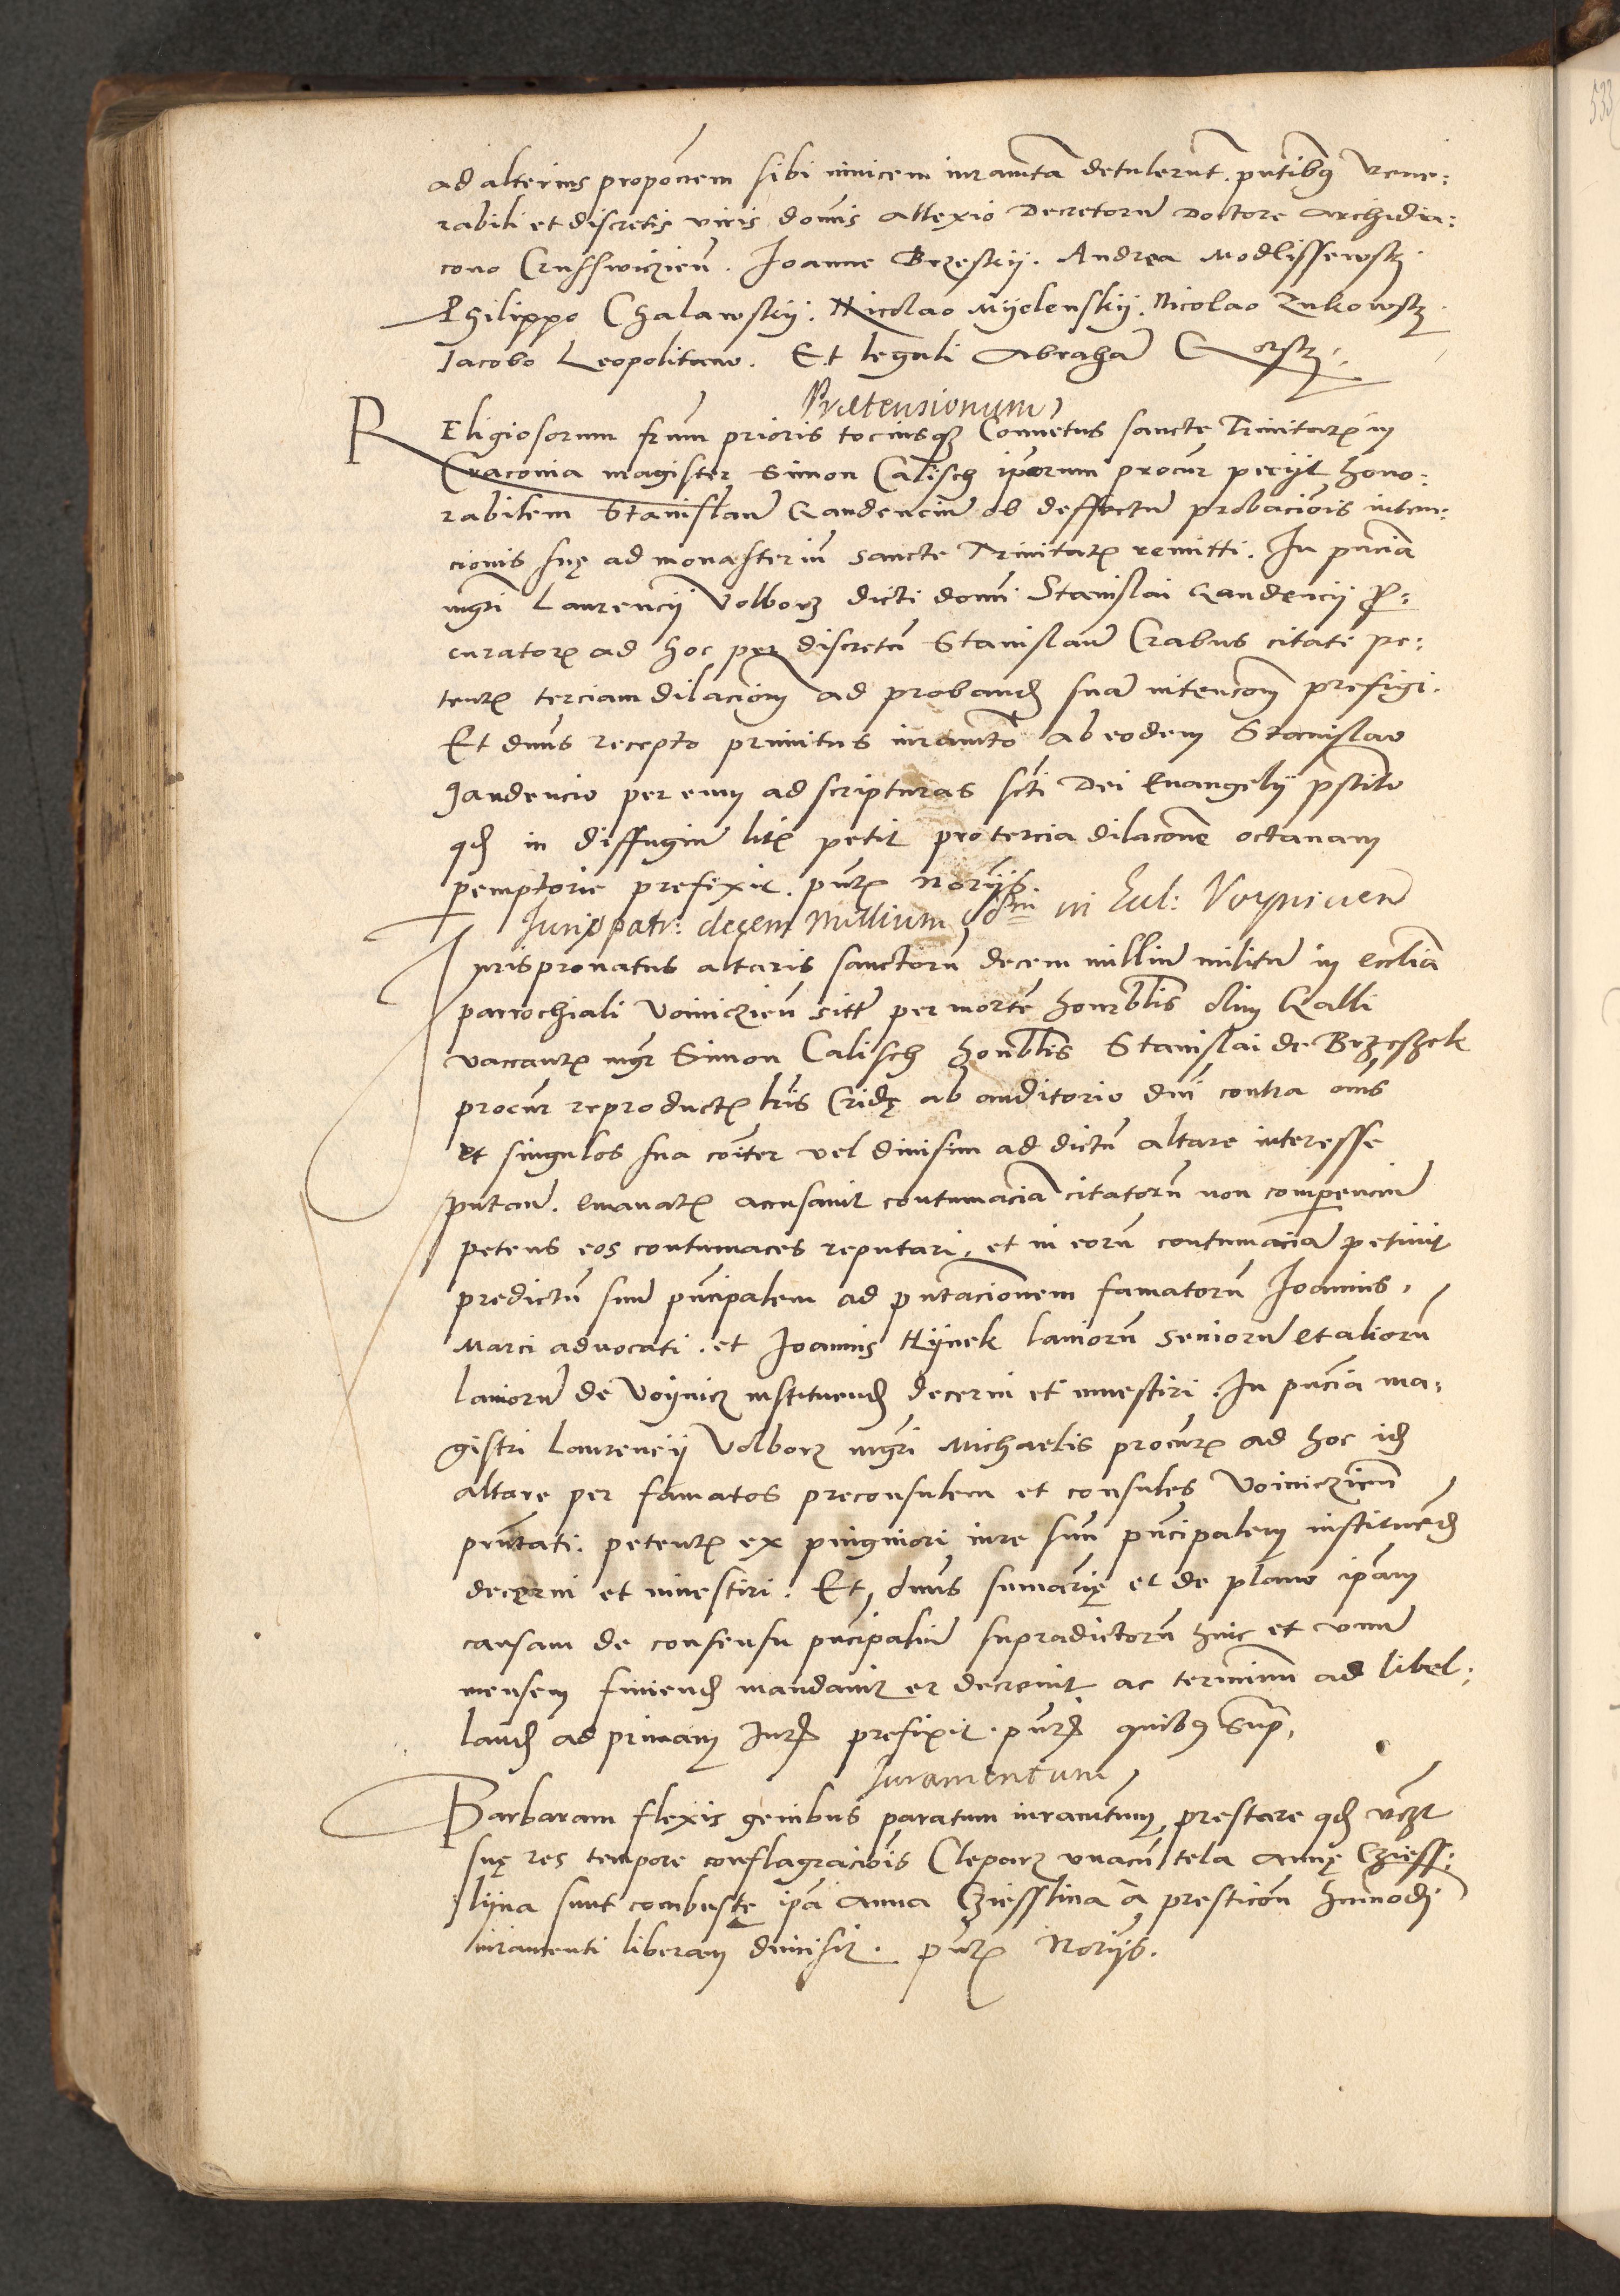 ad alterius proponem sibi inuicem iuramta detulerunt. pntibus Vene:
rabili et discretis viris domnis Allexio Decretorum Doctore Archidia:
cono Crusswiczien. Joanne Brzeskij. Andrea Modlissewskj
Philippo Chalawskij. Nicolao Myelenskij. Nicolao Zukowskj
Jacobo Leopolitano. Et leguli Abraham
Prætensionum
REligiosorum frum prioris tociusqz Conuetus sancte Trinitatis in
Craconia magister Simon Calisch ipsorum procur pecijt hono:
rabilem Stanislaum Gaudencium ob deffectum probaciois inten:
cionis suę ad monasterium Sancte Trinitatis remitti. In pncia
mgri Laurencij Volborz dicti domni Stanislai Gaudencij Pro:
curatoris ad hoc per discretum Stanislaum Crabus citati pe:
tentis terciam dilaciom ad proband suam intencom prefigi.
Et dnus recepto primitus iuramto ab eodem Stanislao
Gaudencio per eum ad scripturas scti Dei Euangelij pstito
qd in diffugium litis petit pro tercia dilacone octauam
pemptorie prefixit. pntis Norijs.
Jurispatr: decem Millium in Eul: Voyniceń
Jurispronatus altaris sanctorum decem millium militum in ecclia
parrochiali Voiniczien sitt per mortem honrblis olim Galli
vaccantis mgr Simon Calisch honrblis Stanislai de Brzeszek
procur reproductis lris Cridę ab auditorio dni contra oms
et singulos sua coiter vel diuisim ad dictum altare interesse
putan. emanatis accusauit contumaciam citatorum non comperencium
petens eos contumaces reputari, et in eorum contumaciam petiuit
predictum suum pncipalem ad pntacionem famatorum Joannis.
Marci aduocati. et Joannis Hijnek laniorum seniorum et aliorum
laniorum de Voijnicz instituend decerni et inuestiri. In pncia ma:
gistri Laurencij Volborz mgri Michaelis procuris ad hoc id
altare per famatos preconsulem et consules Voiniczien
prntati. petentis ex pinguiori iure suum pncipalem instituend
decerni et inuestiri. Et dnus sumarię et de plano ipam
causam de consensu pncipalium supradictorum hinc et vnum
mensem finiend mandauit et decreuit ac terminum ad libel:
land ad primam Jurd prefixit. pntibus quibus Supr.
Juramentum
Barbaram flexis genibus paratum iuramtum prestare qd
suę res tempore conflagraciois Cleparz vnacum tela Annę Cziess:
lijna sunt combustę ipa Anna Cziesslina a presticon humodi
iuramenti liberam dimisit. pntis Norijs.
533